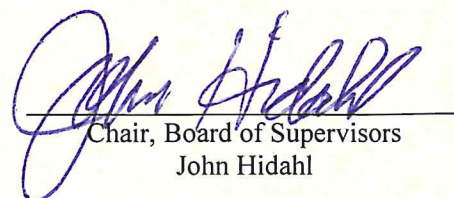 John Hidahl
Chair, Board of Supervisors
John Hidahl